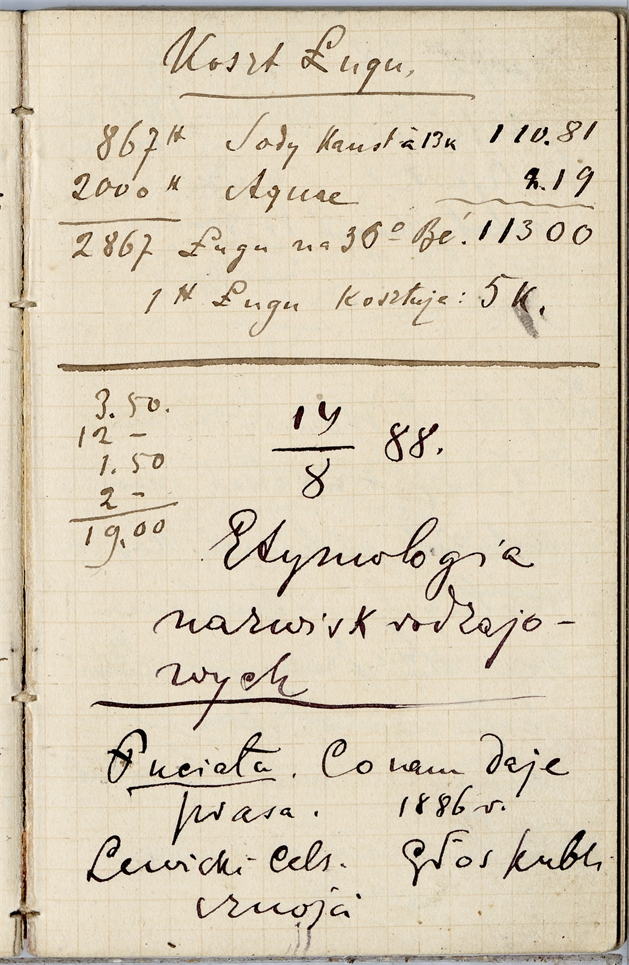 Koszt Ługu,
867 ℔ Sody Kaust à 13 k 110.81
2000 ℔ Aquae 2.19
2867 Ługu na 36º Bé. 11300
1 ℔ Ługu Kosztuje: 5 K.
3.50.
12 -
1.50
2 -
19.00
14/8 88.
Etymologia
nazwisk rodzajo-
wych
Puciata. Co nam daje
prasa. 1886 r.
Lewicki Cels. Głos publi